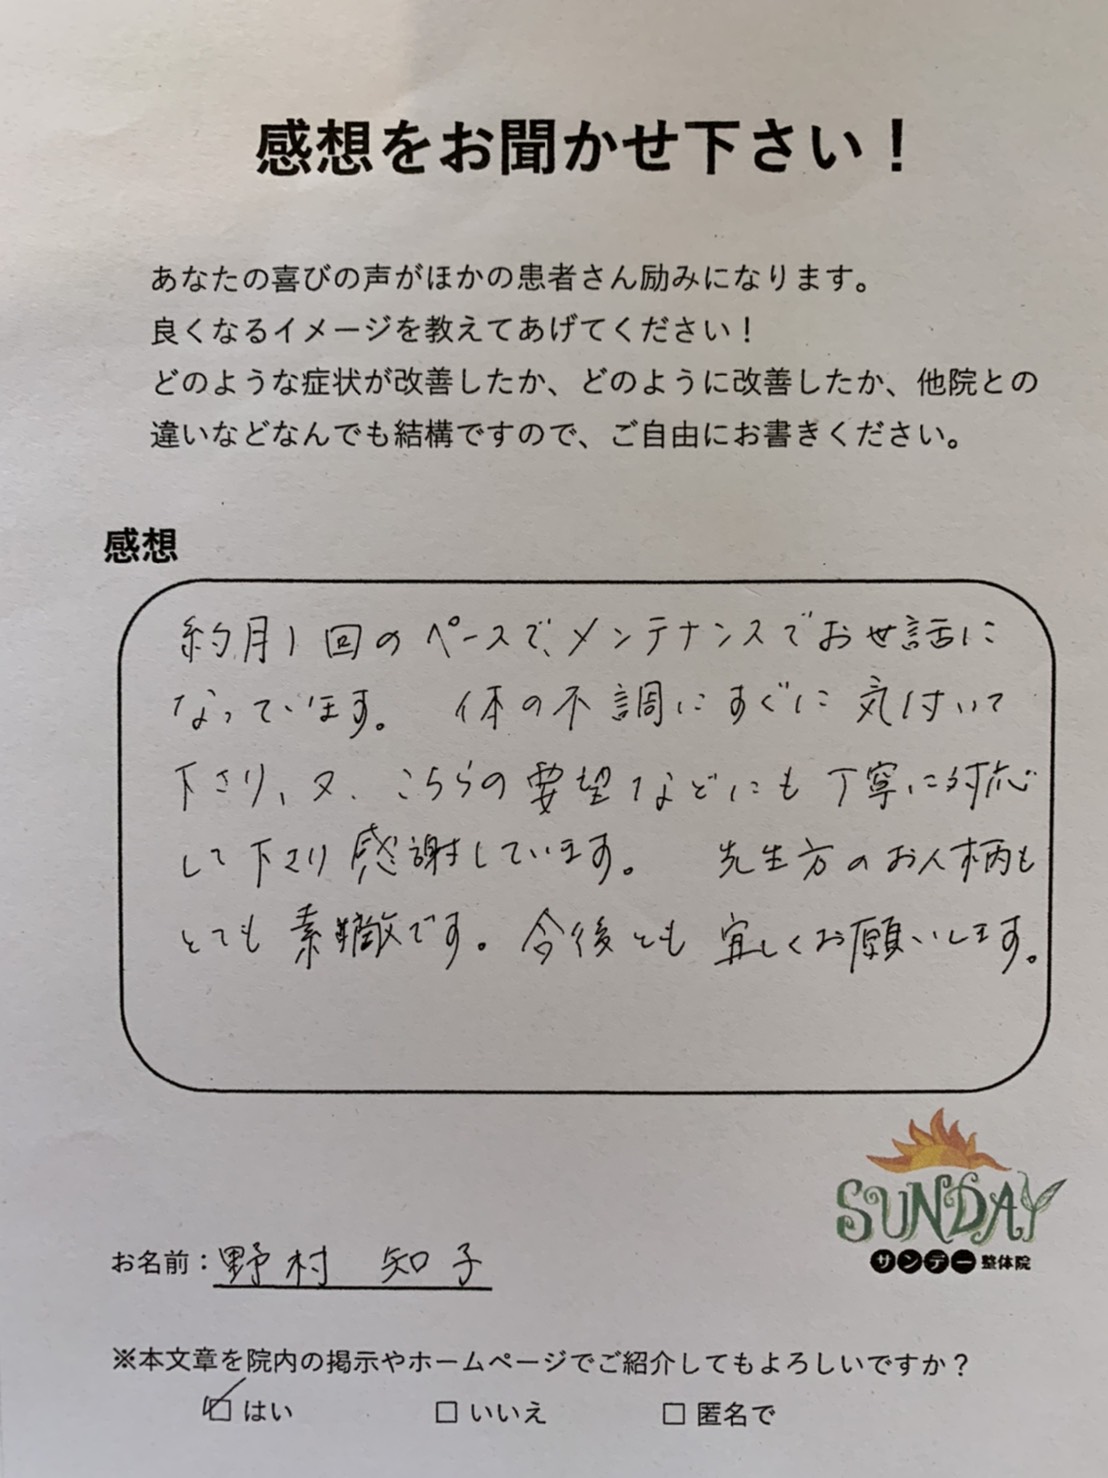 感想をお聞かせ下さい！
あなたの喜びの声がほかの患者さん励みになります。
良くなるイメージを教えてあげてください！
どのような症状が改善したか、どのように改善したか、他院との
違いなどなんでも結構ですので、ご自由にお書きください。
感想
約月1回のペースで、メンテナンスでお世話に
なっています。 体の不調にすぐに気付いて
下さり、又、こちらの要望などにも丁寧に対応
して下さり感謝しています。 先生方のお人柄も
とても素敵です。今後とも宜しくお願いします。
SUNDAY
サンデー整体院
お名前：野村 知子
※本文章を院内の掲示やホームページでご紹介してもよろしいですか？
☑はい □いいえ □匿名で